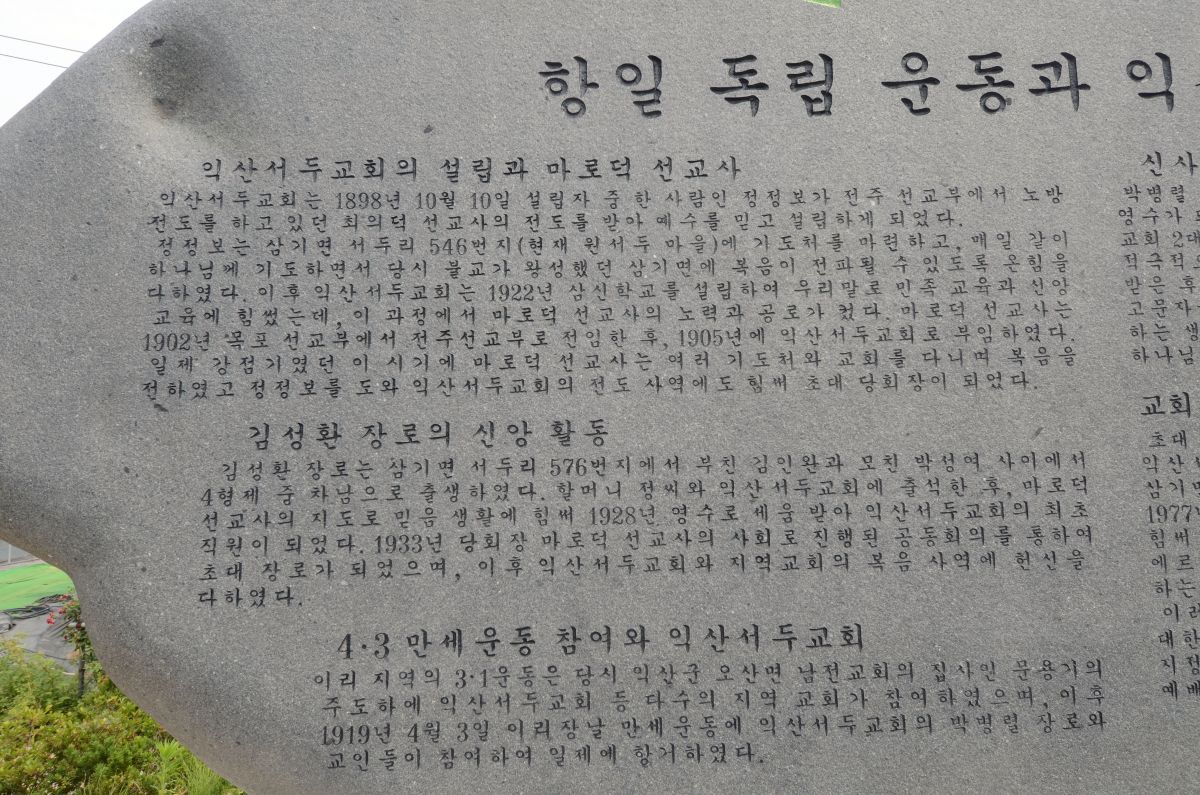 항일 독립 운동과 익
익산서두교회의 설립과 마로덕 선교사
익산서두교회는 1898년 10월 10일 설립자 중 한 사람인 정정보가 전주 선교부에서 노방
전도를 하고 있던 최의덕 선교사의 전도를 받아 예수를 믿고 설립하게 되었다.
정정보는 삼기면 서두리 546번지(현재 원서두 마을)에 기도처를 마련하고, 매일 같이
하나님께 기도하면서 당시 불교가 왕성했던 삼기면에 복음이 전파될 수 있도록 온힘을
다하였다. 이후 익산서두교회는 1922년 삼신학교를 설립하여 우리말로 민족 교육과 신앙
교육에 힘썼는데, 이 과정에서 마로덕 선교사의 노력과 공로가 컸다. 마로덕 선교사는
1902년 목포 선교부에서 전주선교부로 전임한 후, 1905년에 익산서두교회로 부임하였다.
일제 강점기였던 이 시기에 마로덕 선교사는 여러 기도처와 교회를 다니며 복음을
전하였고 정정보를 도와 익산서두교회의 전도 사역에도 힘써 초대 당회장이 되었다.
김성환 장로의 신앙 활동
김성환 장로는 삼기면 서두리 576번지에서 부친 김인완과 모친 박성여 사이에서
4형제 중 차남으로 출생하였다. 할머니 정씨와 익산서두교회에 출석한 후, 마로덕
선교사의 지도로 믿음 생활에 힘써 1928년 영수로 세움 받아 익산서두교회의 최초
직원이 되었다. 1933년 당회장 마로덕 선교사의 사회로 진행된 공동회의를 통하여
초대 장로가 되었으며, 이후 익산서두교회와 지역교회의 복음 사역에 헌신을
다하였다.
4·3 만세운동 참여와 익산서두교회
이리 지역의 3·1운동은 당시 익산군 오산면 남전교회의 집사인 문용기의
주도하에 익산서두교회 등 다수의 지역 교회가 참여하였으며, 이후
1919년 4월 3일 이리장날 만세운동에 익산서두교회의 박병렬 장로와
교인들이 참여하여 일제에 항거하였다.
신사
박병렬
영수가
교회 2대
적극적
받은 후
고문자
하는 생
하나님
교회
초대
익산
삼기면
1977년
힘써
에르
하는
이리
대한
지정
예배